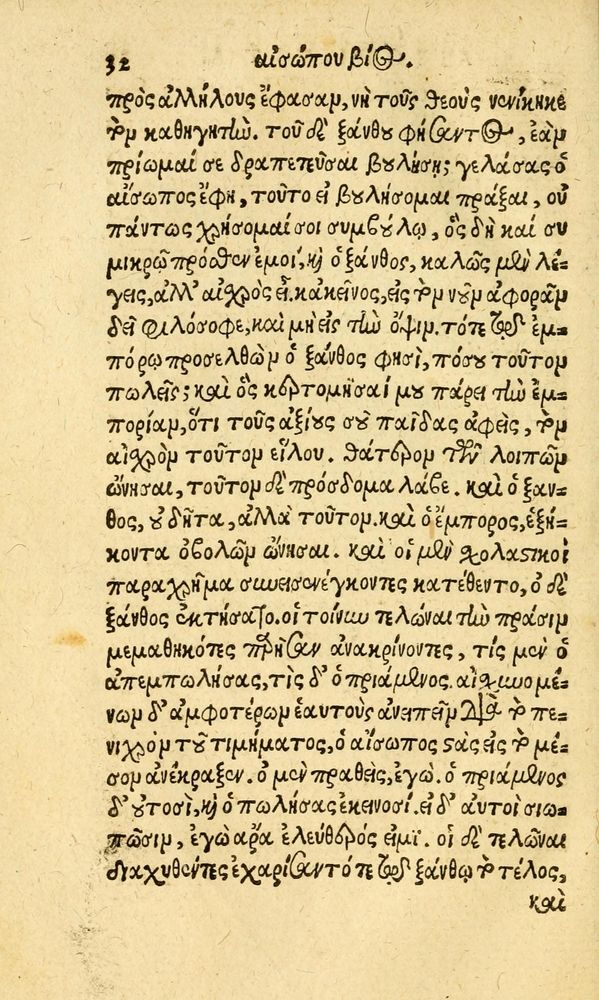 32 αἰσώπου βίος.
πρὸς ἀλλήλους ἔφασαν, νὴ τοὺς θεοὺς νενίκηκε
τὸν καθηγητίω. τοῦ δὲ ξάνθου φήσαντος, ἐὰν
πρίωμαί σε δραπετεῦσαι βουλήσῃ; γελάσας ὁ
αἴσωπος ἔφη, τοῦτο εἰ βουλήσομαι πράξαι, οὐ
πάντως χρήσομαί σοι συμβούλῳ, ὃς δὴ καὶ σὺ
μικρῷ πρόσθεν ἐμοί, καὶ ὁ ξάνθος, καλῶς μὲν λέ-
γεις, ἀλλ' αἰχρὸς εἶ. κἀκεῖνος, εἰς τὸν νοῦν ἀφορᾶν
δεῖ φιλόσοφε, καὶ μὴ εἰς τὴν ὄψιν. τότε τῷ ἐμ-
πόρῳ προσελθὼν ὁ ξάνθος φησὶ, πόσου τοῦτον
πωλεῖς; καὶ ὃς κερτομῆσαί μου πάρει τὴν ἐμ-
πορίαν, ὅτι τοὺς ἀξίους σοῦ παῖδας ἀφεὶς, τὸν
αἰχρὸν τοῦτον εἵλου. θάτερον τῶν λοιπῶν
ὤνησαι, τοῦτον δὲ πρόσδομα λάβε. καὶ ὁ ξαν-
θος, οὐ δῆτα, ἀλλὰ τοῦτον. καὶ ὁ ἔμπορος, ἑξή-
κοντα ὀβολῶν ὤνησαι. καὶ οἱ μὲν χολαστικοὶ
παραχρῆμα συνεισενέγκοντες κατέθεντο, ὁ δὲ
ξάνθος ἐκτήσατο. οἱ τοίνυν τελῶναι τὴν πράσιν
μεμαθηκότες παρῆσαν ἀνακρίνοντες, τίς μὲν ὁ
ἀπεμπωλήσας, τὶς δ' ὁ πριάμενος. αἰχυνομέ-
νων δ' ἀμφοτέρων ἑαυτοὺς ἀνειπεῖν διὰ τὸ πε-
νιχρὸν τοῦ τιμήματος, ὁ αἴσωπος στὰς εἰς τὸ μέ-
σον ἀνέκραξεν. ὁ μὲν πραθεὶς, ἐγώ. ὁ πριάμενος
δ' οὑτοσὶ, καὶ ὁ πωλήσας ἐκεινοσί. εἰ δ' αὐτοὶ σιω-
πῶσιν, ἐγὼ ἄρα ἐλεύθερός εἰμι. οἱ δὲ τελῶναι
διαχυθέντες ἐχαρίσαντό τε τῷ ξάνθῳ τὸ τέλος,
καὶ